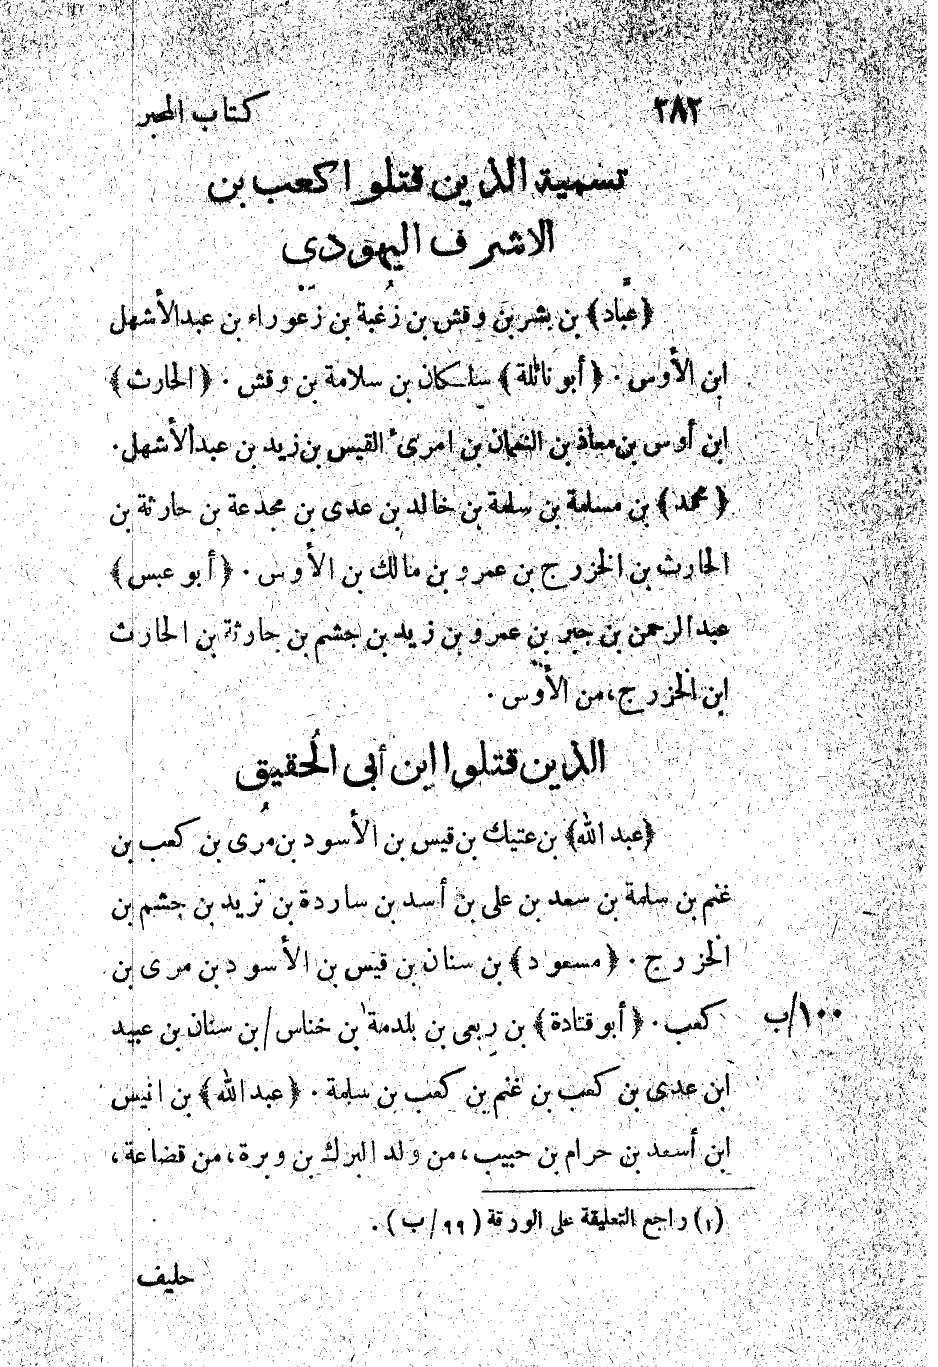 ٢٨٢ كتاب المحبر
تسمية الذين قتلوا كعب بن
الاشرف اليهودي
﴿عبّاد﴾ بن بشر بن وقش بن زُغبة بن زَعوراء بن عبد الأشهل
ابن الأوس . ﴿أبو نائلة﴾ سلكان بن سلامة بن وقش . ﴿الحارث﴾
ابن أوس بن معاذ بن النعمان بن امرىء القيس بن زيد بن عبد الأشهل .
﴿محمد﴾ بن مسلمة بن سلمة بن خالد بن عدى بن مجدعة بن حارثة بن
الحارث بن الخزرج بن عمرو بن مالك بن الأوس . ﴿أبو عبس﴾
عبد الرحمن بن جبر بن عمرو بن زيد بن جشم بن حارثة بن الحارث
ابن الخزرج، من الأوس .
الذين قتلوا ابن أبى الحُقيق
﴿عبد الله﴾ بن عتيك بن قيس بن الأسود بن مُرى بن كعب بن
غنم بن سلمة بن سعد بن على بن أسد بن ساردة بن تزيد بن جشم بن
الخزرج . ﴿مسعود﴾ بن سنان بن قيس بن الأسود بن مرى بن
كعب . ﴿أبو قتادة﴾ بن رِبعى بن بلدمة١ بن خناس / بن سنان بن عبيد
١٠٠/ب
ابن عدى بن كعب بن غنم بن كعب بن سلمة . ﴿عبد الله﴾ بن انيس
ابن أسعد بن حرام بن حبيب، من ولد البرك بن وبرة، من قضاعة،
(١) راجع التعليقة على الورقة (٩٩/ب) .
حليف